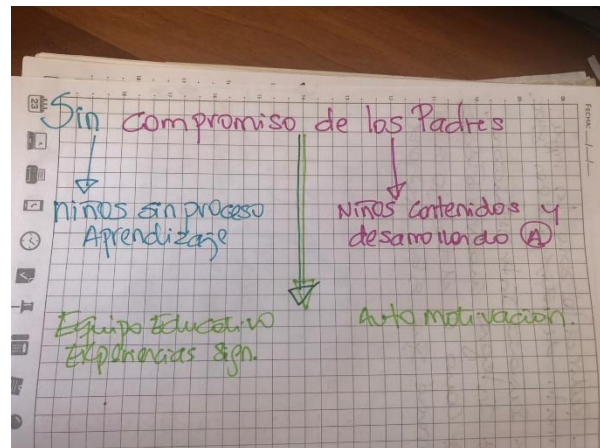 Sin compromiso de los Padres
niños sin proceso
Aprendizaje
Niños contenidos y
desarrollando A
Equipo Educativo
Experiencias Sign.
Auto motivación.
FECHA:
23